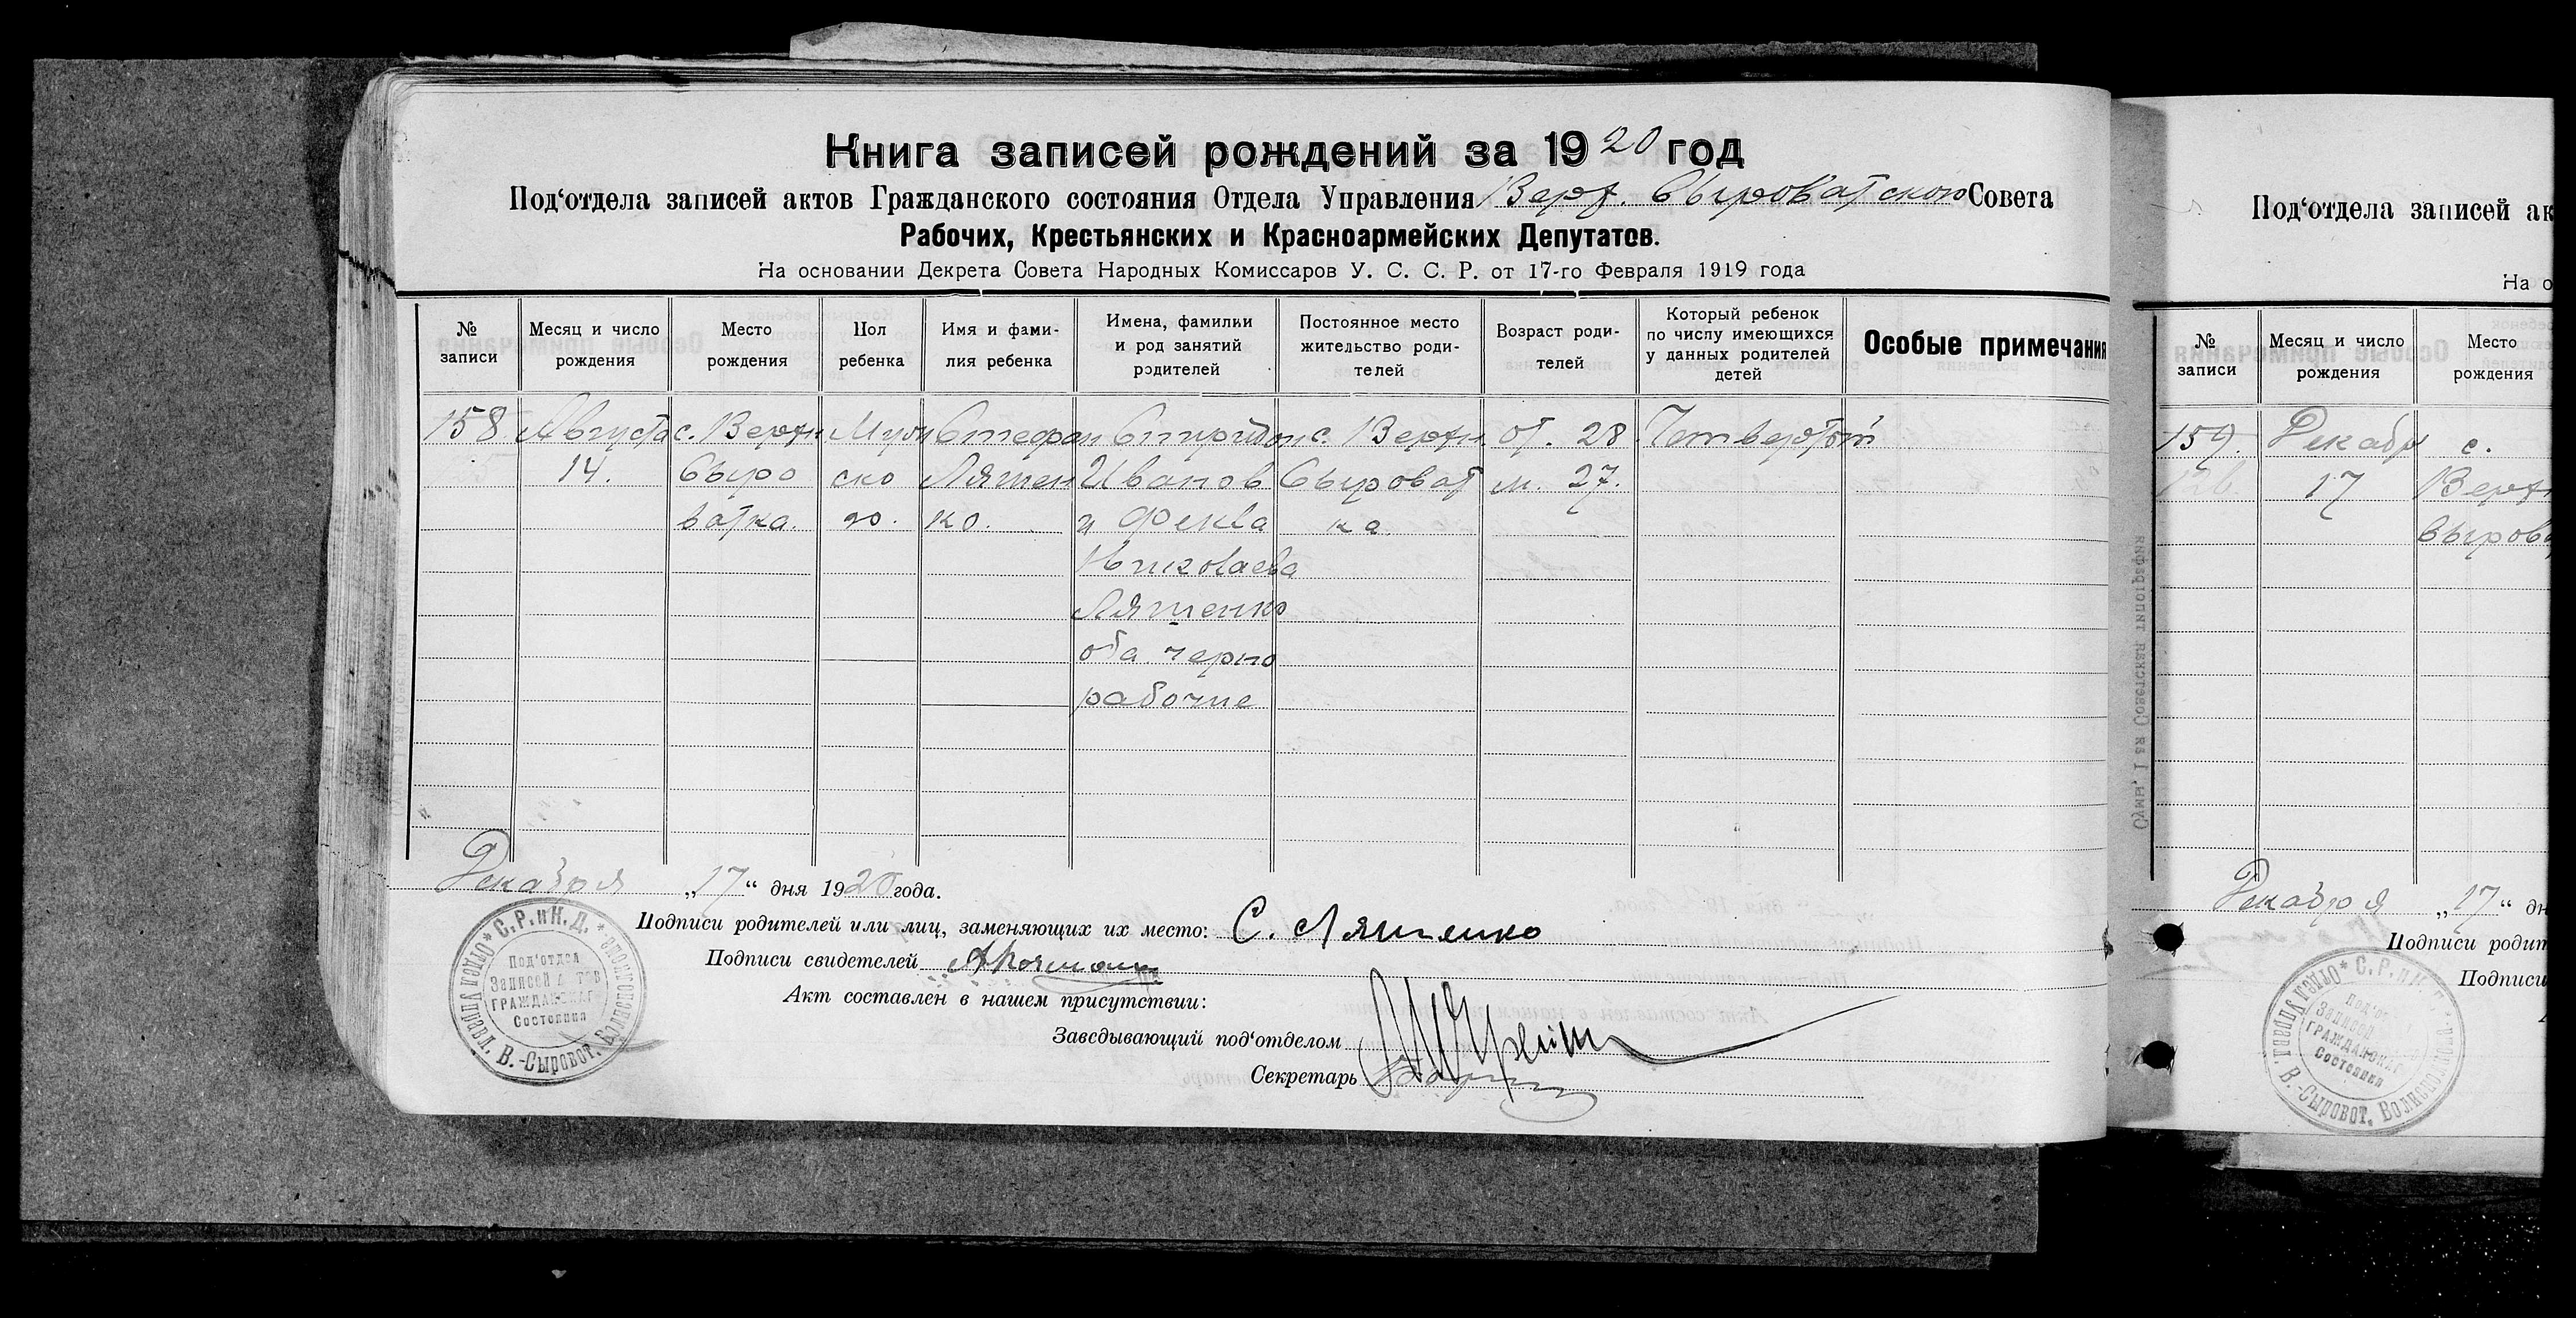 Книга записей рождений за 1920 год
Под‘отдела записей актов Гражданского состояния Отдела Управления Верх. Сыроватского Совета
Рабочих, Крестьянских и Красноармейских Депутатов.
На основании Декрета Совета Народных Комиссаров У. С. С. Р. от 17-го Февраля 1919 года
№ записи
Месяц и число рождения
Место рождения
Пол ребенка
Имя и фами-
лия ребенка
Имена, фамилии
и род занятий
родителей
Постоянное место
жительство роди-
телей
Возраст роди-
телей
Который ребенок
по числу имеющихся
у данных родителей
детей
Особые примечания
158
Августа
14.
с. Верхн.
Сыро
ватка.
Муж
ско
го.
Стефан
Ляшен
ко.
Спиридон
Иванов
и Фекла
Николаева
Ляшенко
оба черно
рабочие
с. Верхн.
Сыроват
ка
от. 28
м. 27.
Четвертый
Декабря „17“ дня 1920 года.
Подписи родителей или лиц, заменяющих их место: С. Ляшенко
Подписи свидетелей
Акт составлен в нашем присутствии:
Заведывающий под‘отделом
Секретарь
* С. Р. и К. Д. *
Отдел Управл. В.-Сыроват.
Под‘отдел
Записей Актов
ГРАЖДАНСКАГО
Состояния
Под‘отдела записей ак
На о
№ записи
Месяц и число рождения
Место рождения
159.
Декабр
17
с.
Верхн
Сырова
Сумы, 1-ая Советская типография
Декабря „17“ дн
Подписи родит
Подписи
Отдел Управл. В.-Сыроват. Волисполкома
Под‘от
Записей
ГРАЖДАНСКАГ
Состояния